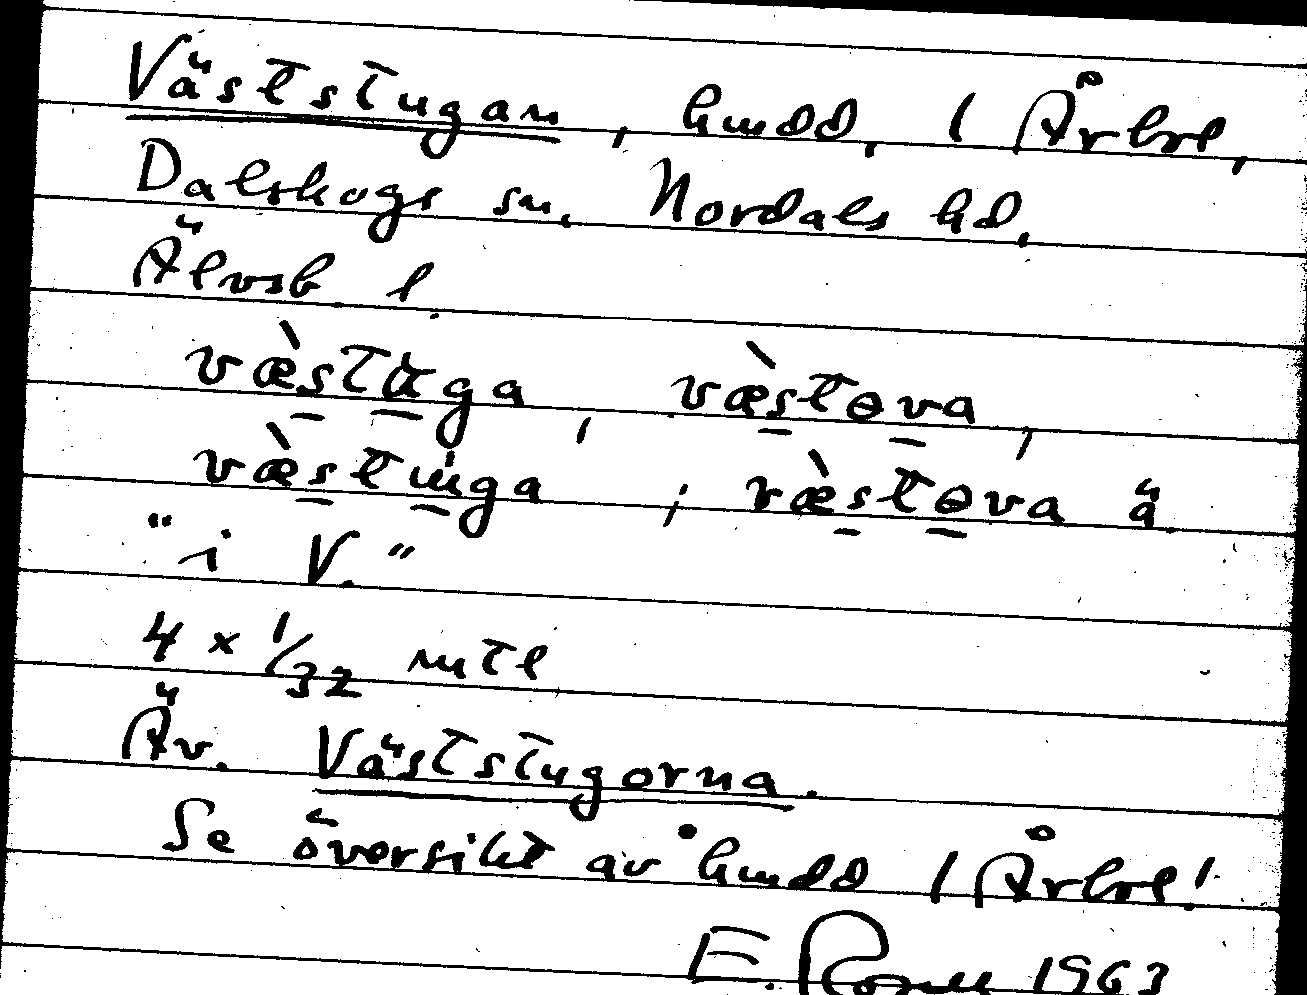 Väststugan, hmdd, i Årbol,
Dalskogs sn. Nordals hd,
Älvsb. l.
væ̀stuga, væ̀stɵva,
væ̀stuga; væ̀stɵva ä
"i V."
4 x 1/32 mtl
Äv. Väststugorna.
Se översikt av hmdd i Årbol!
E. 1963